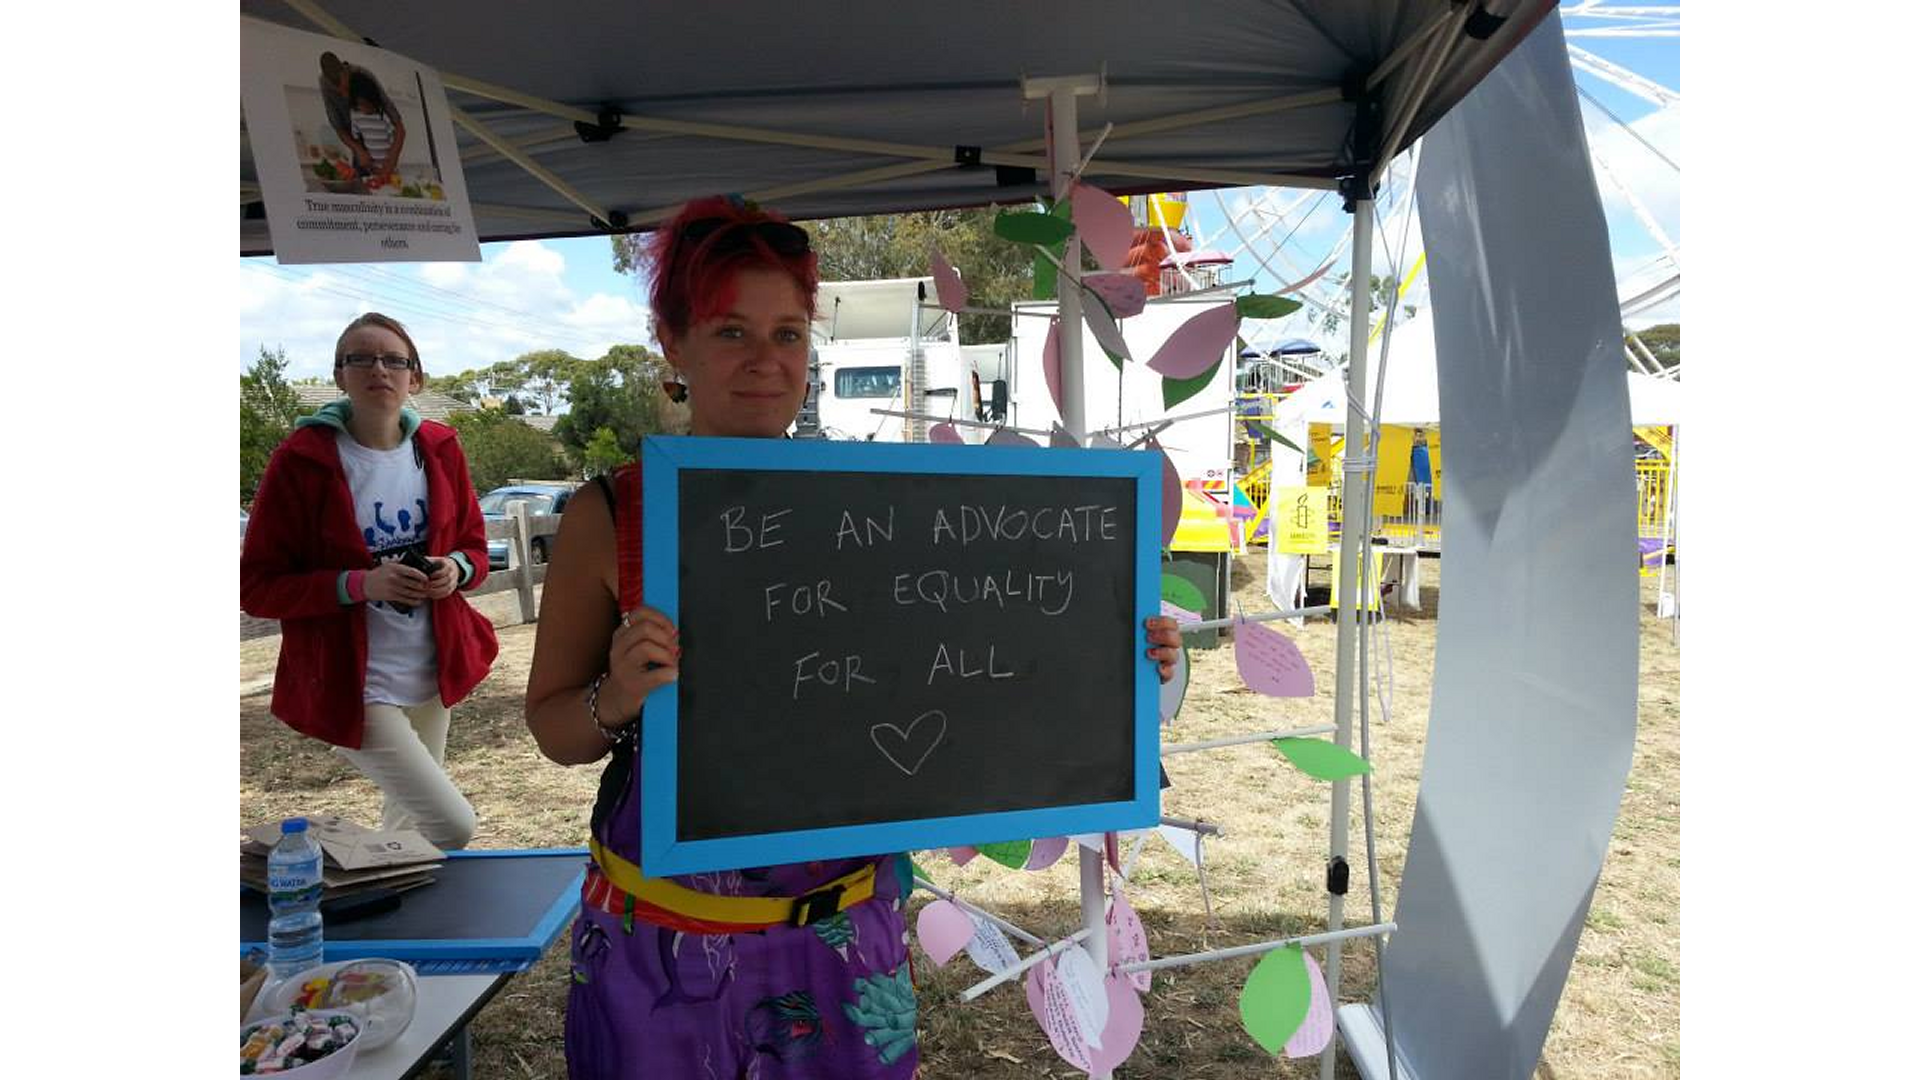 True masculinity is a combination of
commitment, perseverance and caring for
others.
BE AN ADVOCATE
FOR EQUALITY
FOR ALL
WATER